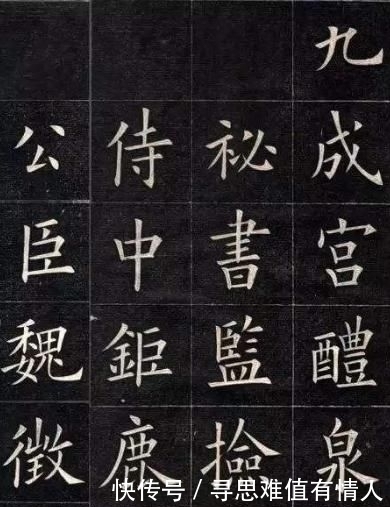 九成宮醴泉
祕書監撿
侍中鉅鹿
公臣魏徵
快传号/寻思难值有情人